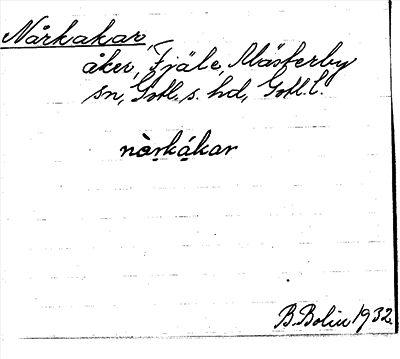 Nårkakar,
åker, Fjäle, Mästerby
sn, Gotl. s. hd, Gotl. l.
nàrkákar
B. Bolin 1932